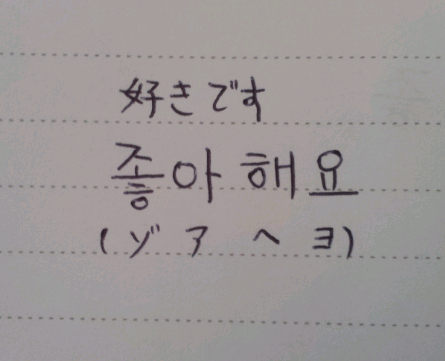 好きです
좋아해요
(ゾアヘヨ)